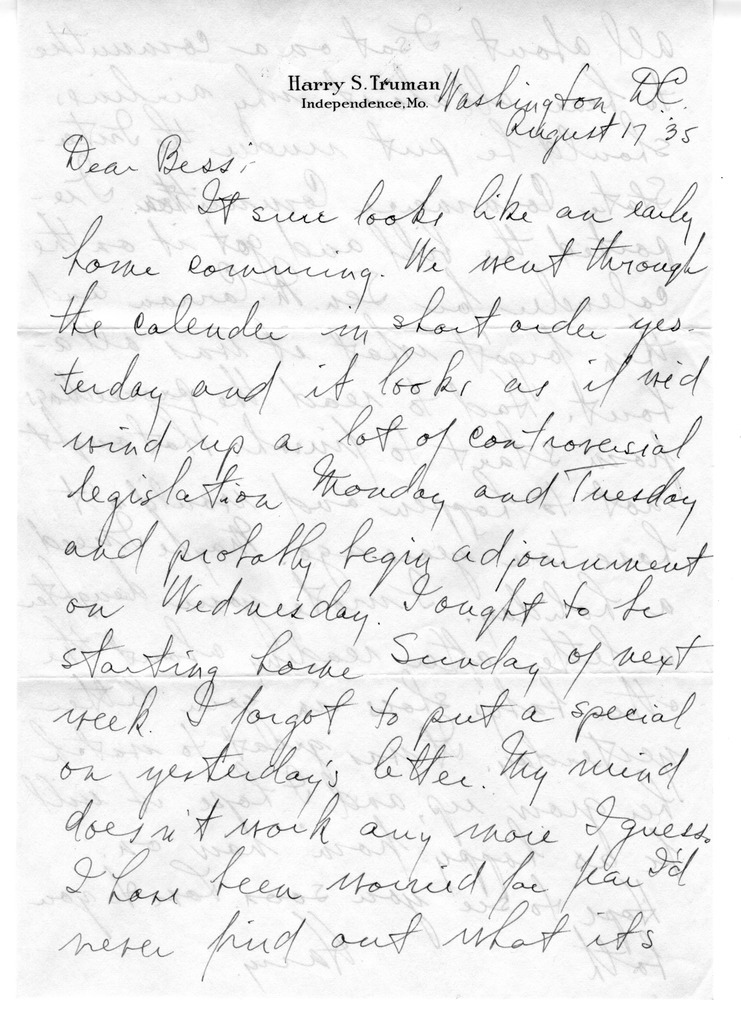 Harry S. Truman
Independence, Mo.
Washington, D.C.
August 17 '35
Dear Bess;
It sure looks like an early
home comming. We went through
the calender in short order yes-
terday and it looks as if we'd
wind up a lot of controversial
legislation Monday and Tuesday
and probably begin adjournment
on Wednesday. I ought to be
starting home Sunday of next
week. I forgot to put a special
on yesterday's letter. My mind
doesn't work any more I guess.
I have been worried for fear I'd
never find out what its